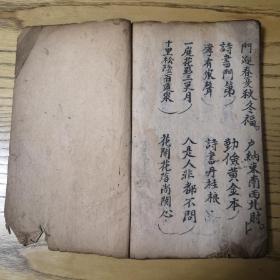 門迎春夏秋冬福 戶納東南西北財
詩書門第 勤儉黃金本
有聲 詩書丹桂根
一庭花影三更月 人是人非都不問
十里松陰百道泉 花開花落尚關心